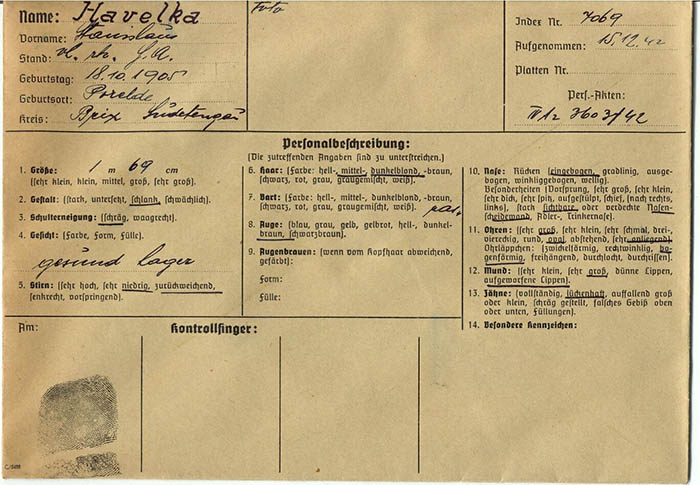 Name: Havelka
Vorname: Stanislaus
Stand: vl. rh. J.A.
Geburtstag: 18.10.1905
Geburtsort:
Kreis: Brix Sudetengau
Foto
Index Nr. 7069
Aufgenommen: 15.12.42
Platten Nr.
Pers.-Akten:
3603/42
Personalbeschreibung:
(Die zutreffenden Angaben sind zu unterstreichen.)
1. Größe: 1 m 69 cm
(sehr klein, klein, mittel, groß, sehr groß).
2. Gestalt: (stark, untersetzt, schlank, schwächlich).
3. Schulterneigung: (schräg, waagrecht).
4. Gesicht: (Farbe, Form, Fülle).
gesund lager
5. Stirn: (sehr hoch, sehr niedrig, zurückweichend,
senkrecht, vorspringend).
6. Haar: (Farbe: hell-, mittel-, dunkelblond, -braun,
schwarz, rot, grau, graugemischt, weiß).
7. Bart: (Farbe: hell-, mittel-, dunkelblond, -braun,
schwarz, rot, grau, graugemischt, weiß).
8. Auge: (blau, grau, gelb, gelbrot, hell-, dunkel-
braun, schwarzbraun).
9. Augenbrauen: (wenn vom Kopfhaar abweichend,
gefärbt):
Form:
Fülle:
10. Nase: Rücken (eingebogen, gradlinig, ausge-
bogen, winkliggebogen, wellig).
Besonderheiten (Vorsprung, sehr groß, sehr klein,
sehr dick, sehr spitz, aufgestülpt, schief, [nach rechts,
links], stark sichtbare oder verdeckte Nasen-
scheidewand, Adler-, Trinkernase).
11. Ohren: (sehr groß, sehr klein, sehr schmal, drei-
viereckig, rund, oval, abstehend, sehr anliegend)
Ohrläppchen: (zwickelförmig, rechtwinklig, bo-
genförmig, freihängend, durchlocht, durchrissen).
12. Mund: (sehr klein, sehr groß, dünne Lippen,
aufgeworfene Lippen).
13. Zähne: (vollständig, lückenhaft, auffallend groß
oder klein, schräg gestellt, falsches Gebiß oben
oder unten, Füllungen).
14. Besondere Kennzeichen:
Am:
Kontrollfinger: